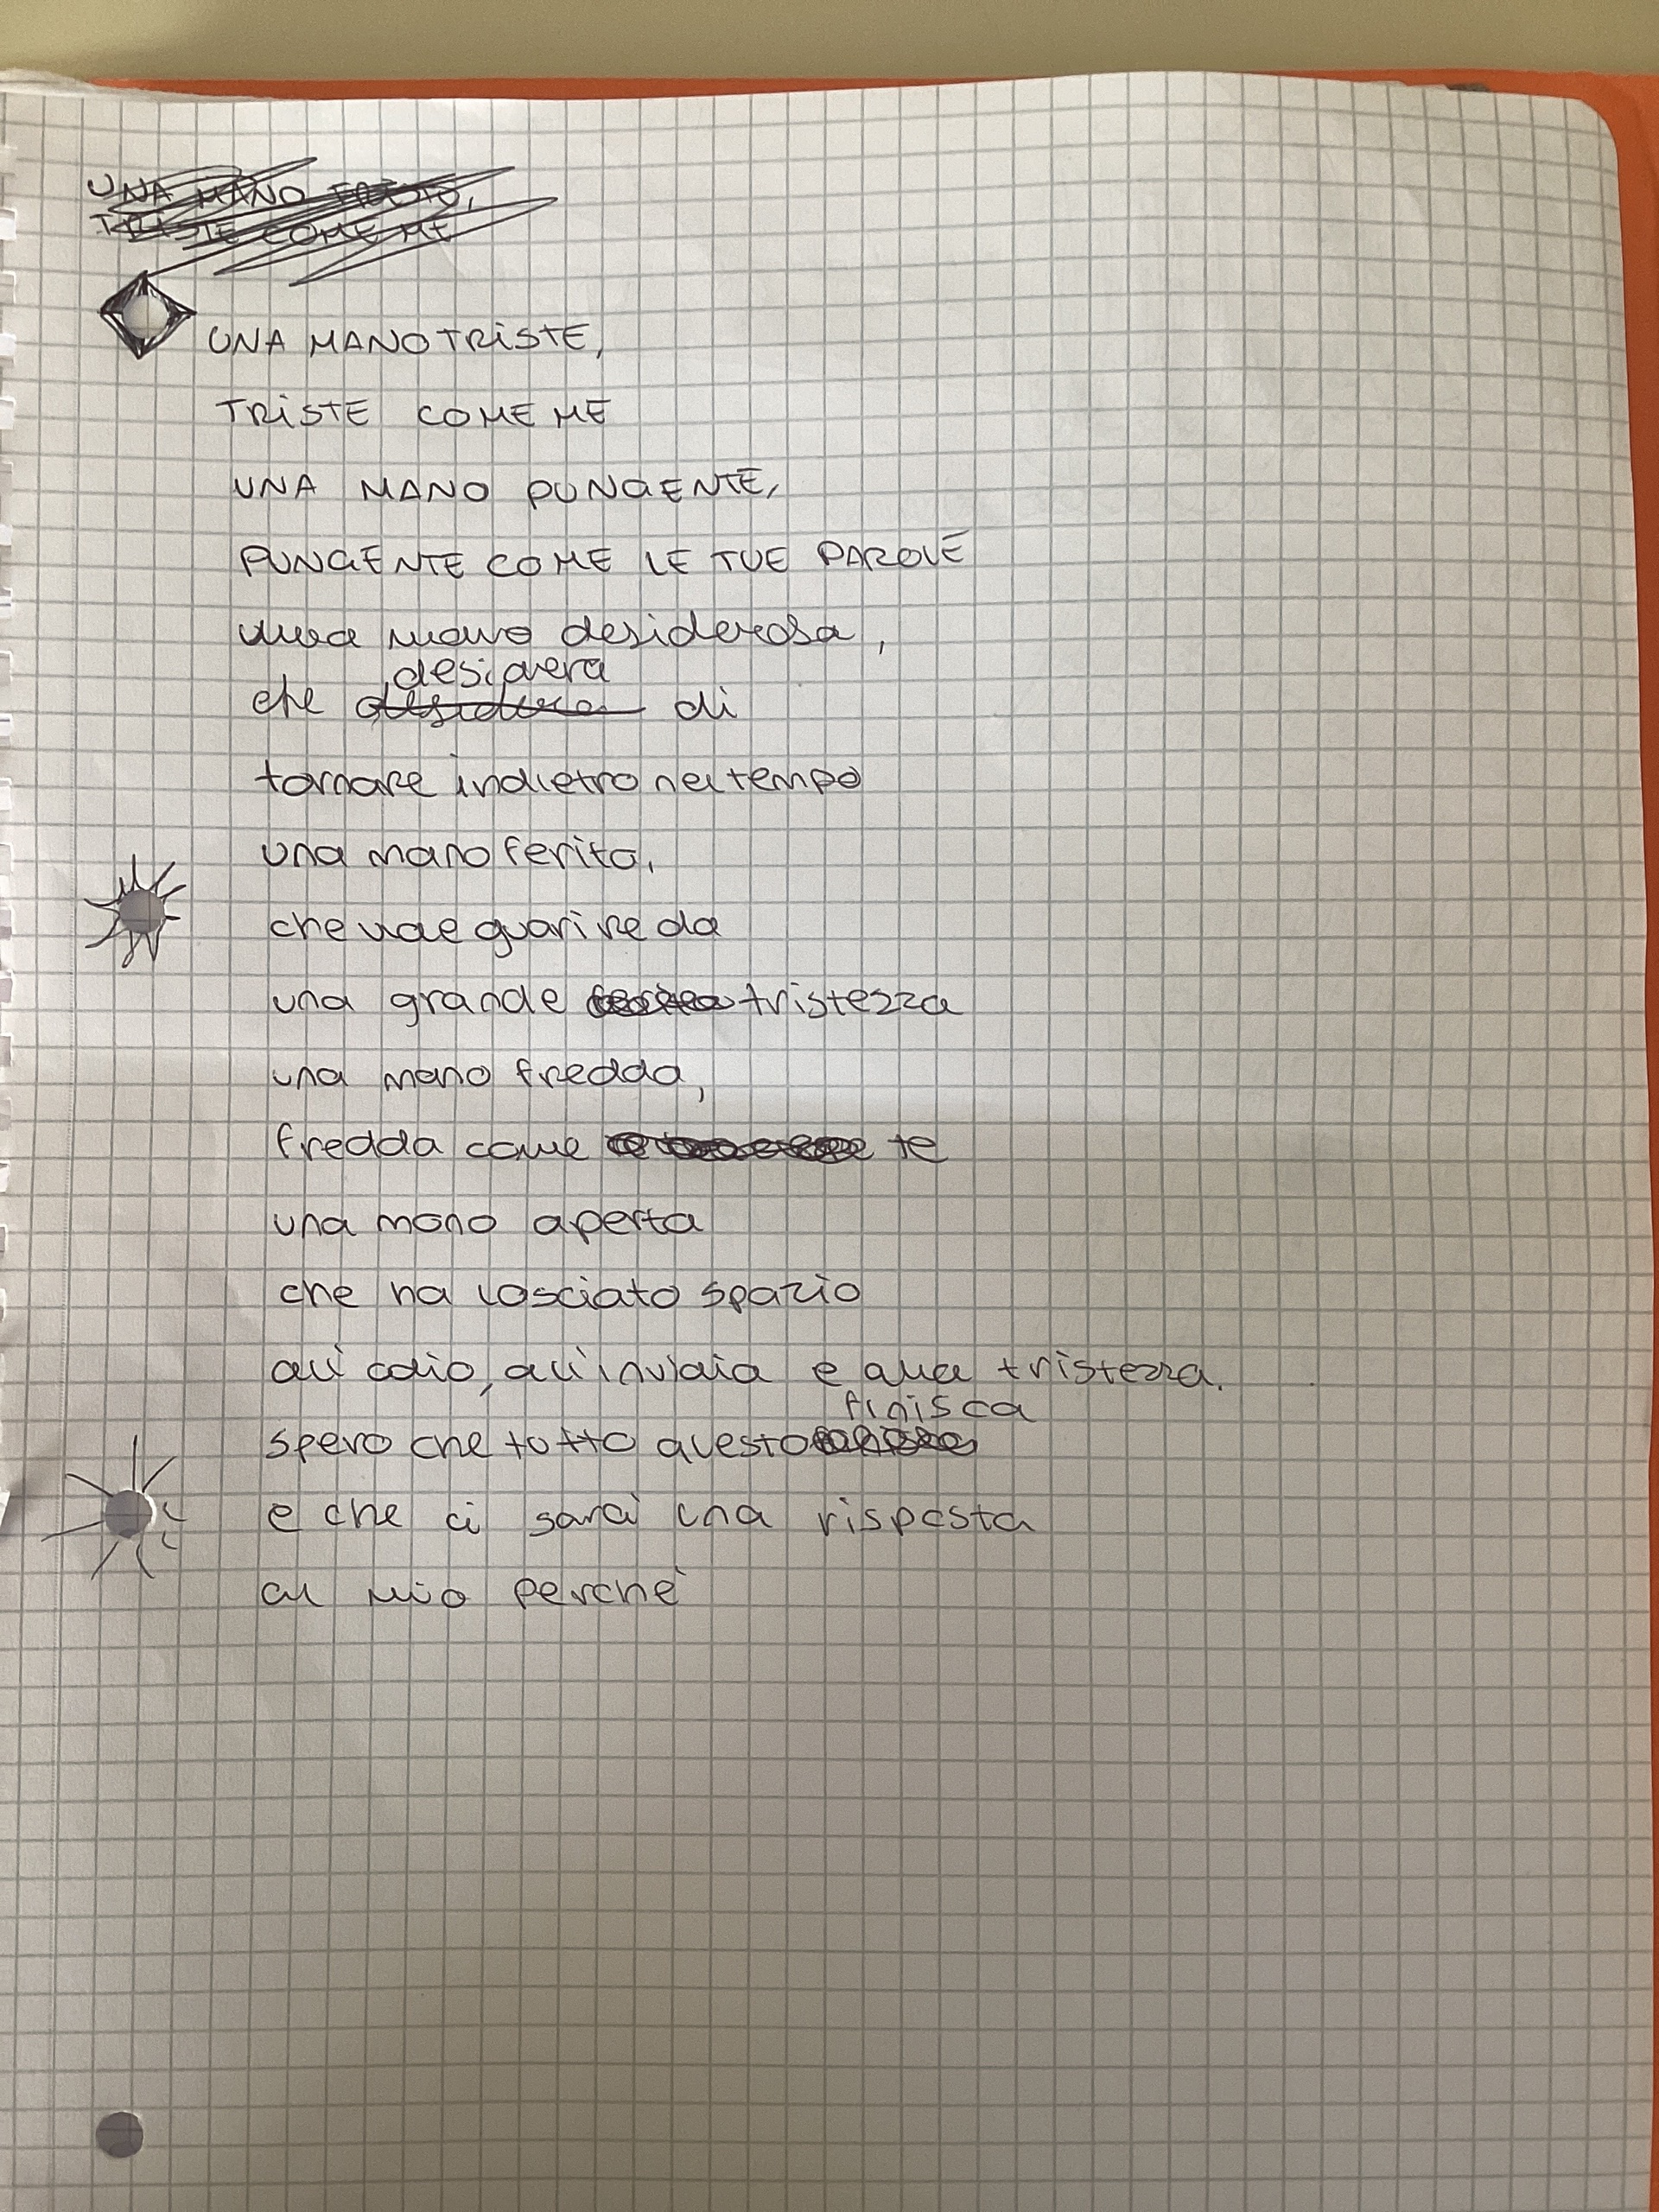 UNA MANO
TRISTE COME ME
UNA MANO TRISTE,
TRISTE COME ME
UNA MANO PUNGENTE,
PUNGENTE COME LE TUE PAROLE
una mano desiderosa,
desidera
che desidera di
tornare indietro nel tempo
una mano ferita,
che vuole guarire da
una grande tristezza
una mano fredda,
fredda come te
una mano aperta
che ha lasciato spazio
all'odio, all'invidia e alla tristezza.
finisca
spero che tutto questo
e che ci sarà una risposta
al mio perché